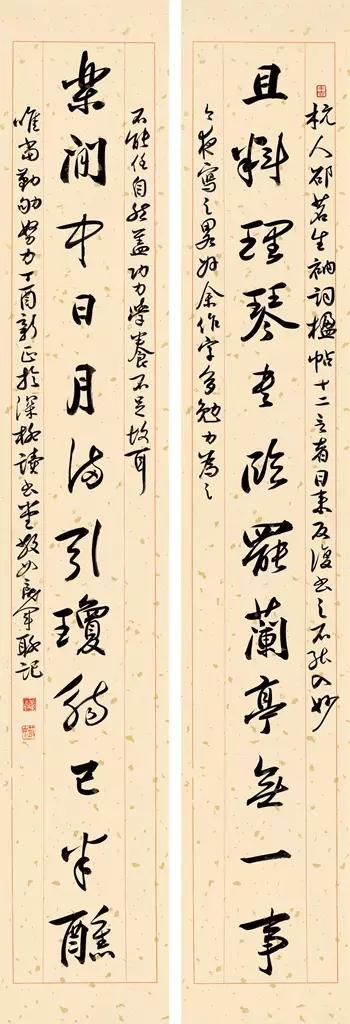 杭人邵茗生衲詞楹帖十二言者日来反復书之不能入妙
且料理琴书臨罷蘭亭無一事
夜寫之畧好余作字多勉力為之
不能任自然蓋功力學養不足故耳
樂閒中日月满引瓊觴已半醺
唯當勤劬努力丁酉新正於深柳讀书堂軍聯記